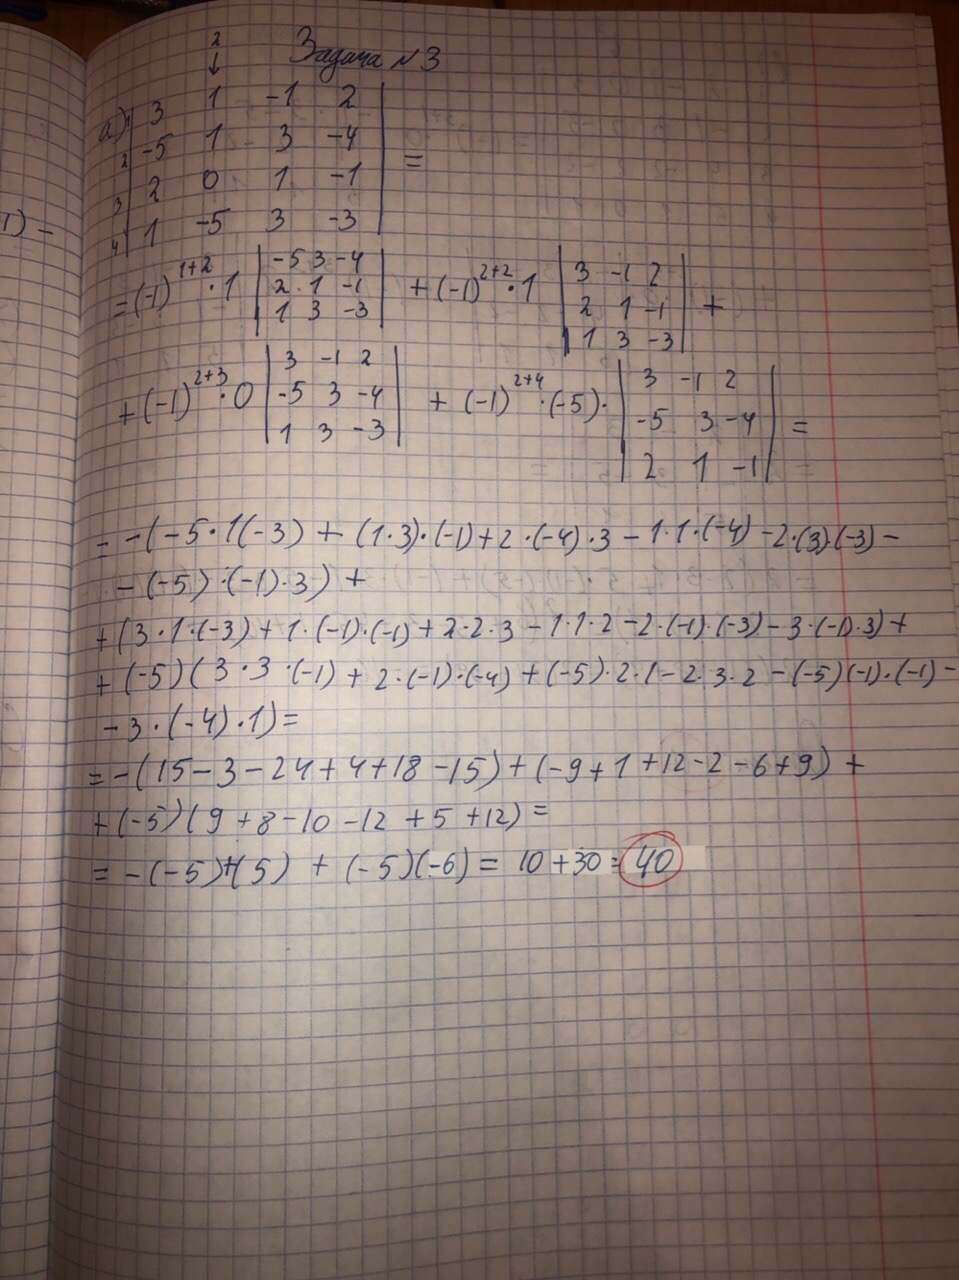 2
↓ Задача №3
а) 1 | 3 1 -1 2 |
2 | -5 1 3 -4 | =
3 | 2 0 1 -1 |
4 | 1 -5 3 -3 |
1) -
= (-1)^{1+2} · 1 | -5 3 -4 | + (-1)^{2+2} · 1 | 3 -1 2 | +
| 2 1 -1 | | 2 1 -1 |
| 1 3 -3 | | 1 3 -3 |
+ (-1)^{2+3} · 0 | 3 -1 2 | + (-1)^{2+4} · (-5) · | 3 -1 2 | =
| -5 3 -4 | | -5 3 -4 |
| 1 3 -3 | | 2 1 -1 |
= -(-5·1(-3) + (1·3)·(-1)+2·(-4)·3 - 1·1·(-4) -2·(3)·(-3) -
- (-5)·(-1)·3) +
+ (3·1·(-3) + 1·(-1)·(-1) + 2·2·3 - 1·1·2 -2·(-1)·(-3) - 3·(-1)·3) +
+ (-5)(3·3·(-1) + 2·(-1)·(-4) + (-5)·2·1 - 2·3·2 - (-5)(-1)·(-1) -
- 3·(-4)·1) =
= -(15-3-24+4+18-15) + (-9+1+12-2-6+9) +
+ (-5)(9+8-10-12+5+12) =
= -(-5)+(5) + (-5)(-6) = 10+30 = 40